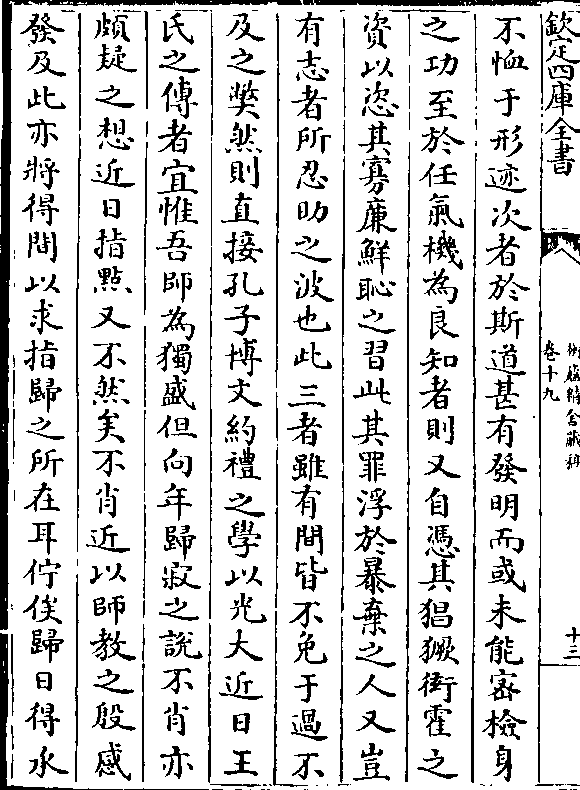 欽定四庫全書
衡廬精舍藏稿
卷十九
十三
不恤于形迹次者於斯道甚有發明而或未能密檢身
之功至於任氣機為良知者則又自憑其猖獗衒霍之
資以恣其寡廉鮮恥之習此其罪浮於暴棄之人又豈
有志者所忍助之波也此三者雖有間皆不免于過不
及之獘然則直接孔子博文約禮之學以光大近日王
氏之傳者宜惟吾師為獨盛但向年歸寂之說不肖亦
頗疑之想近日指點又不然矣不肖近以師教之殷感
發及此亦將得間以求指歸之所在耳佇俟歸日得承